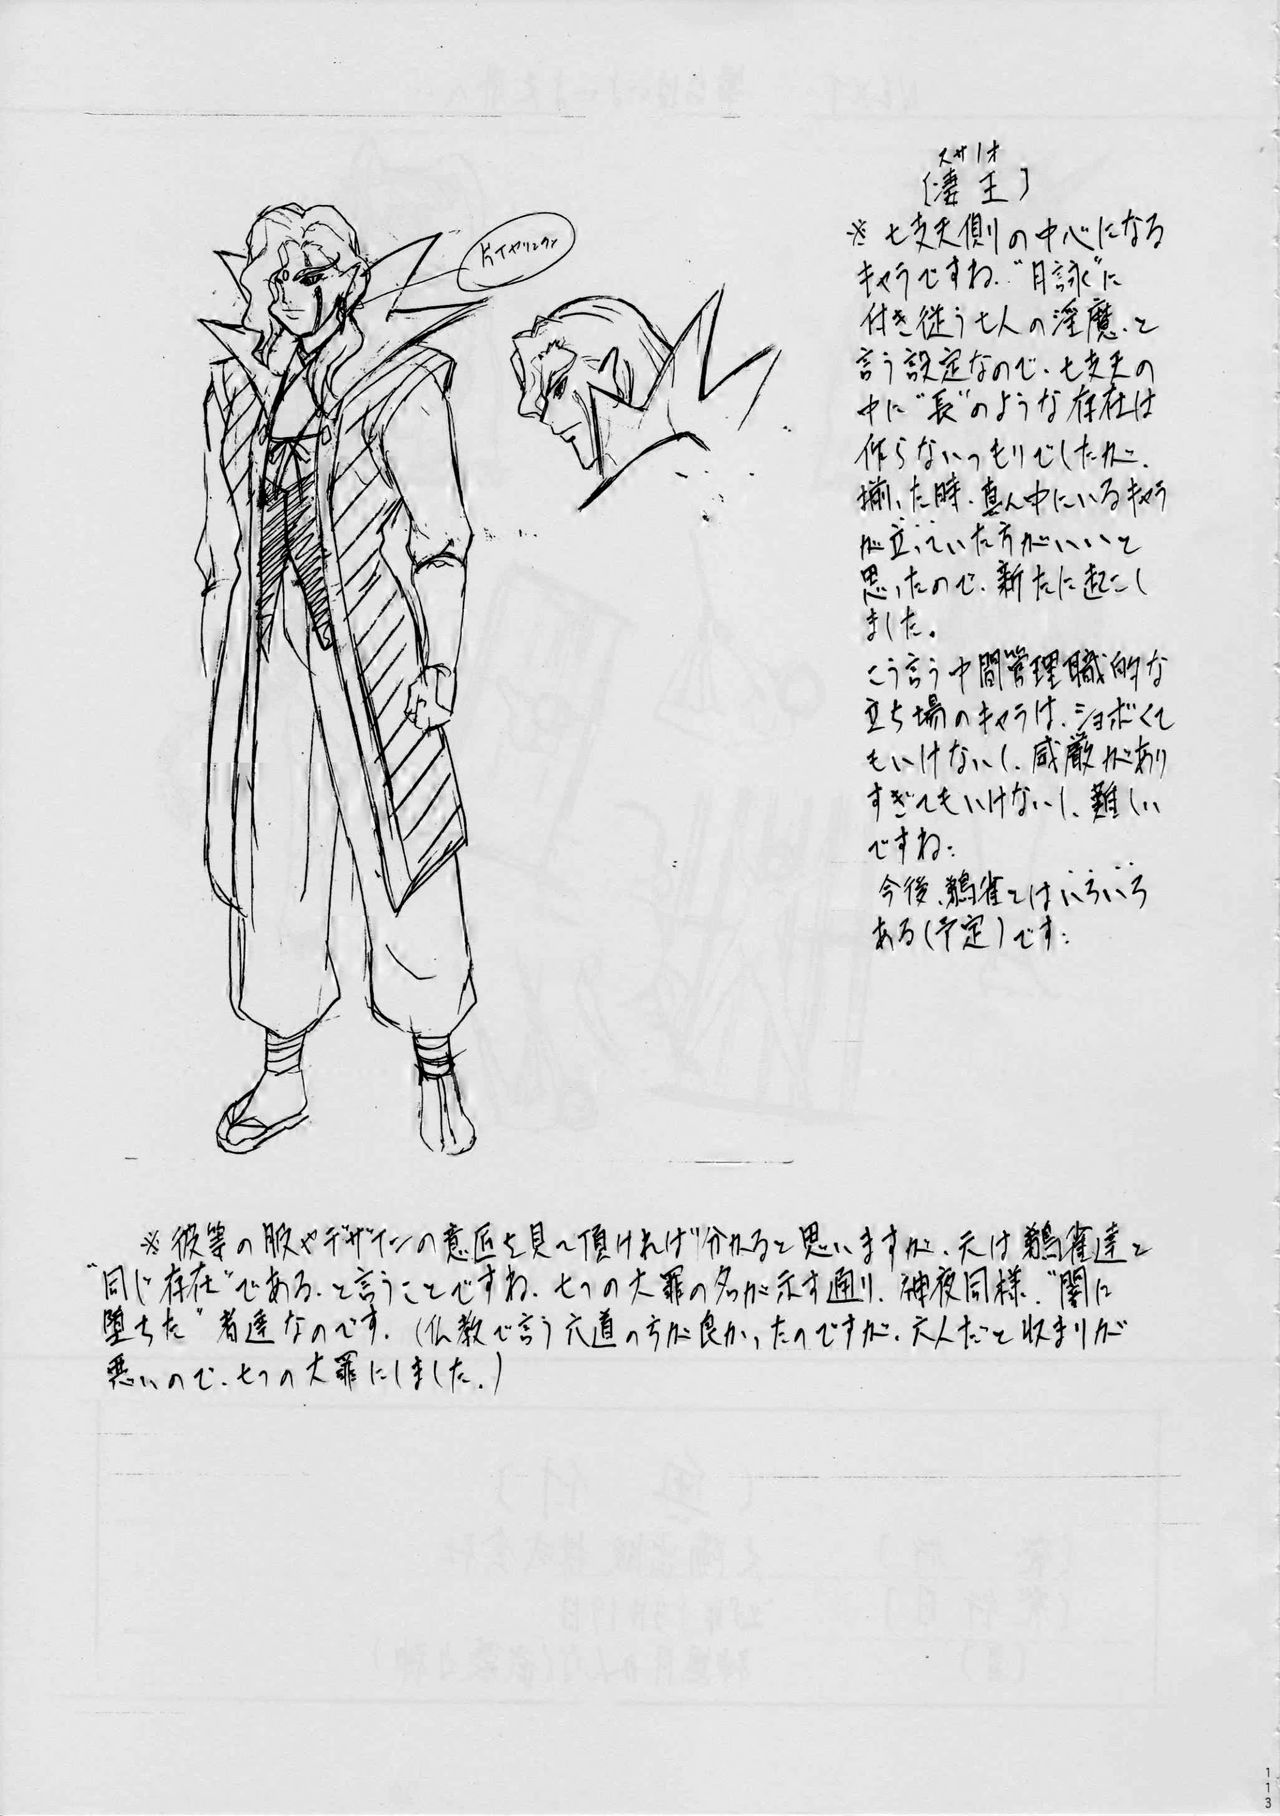 スサノオ
[凄王]
※七支天側の中心になる
キャラですね。"月詠"に
付き従う七人の淫魔、と
言う設定なので、七支天の
中に"長"のような存在は
作らないつもりでしたが、
揃った時、真ん中にいるキャラ
が立っていた方がいいと
思ったので、新たに起こし
ました。
こう言う中間管理職的な
立ち場のキャラは、ショボくて
もいけないし、威厳があり
すぎてもいけないし、難しい
ですね…
今後、鵺雀とはいろいろ
ある(予定)です…
片イヤリング
※彼等の服やデザインの意匠を見て頂ければ分かると思いますが、元は鵺雀達と
"同じ存在"である、と言うことですね。七つの大罪の名が示す通り、神夜同様、"闇に
堕ちた"者達なのです。(仏教で言う六道の方が良かったのですが、六人だと収まりが
悪いので、七つの大罪にしました。)
113